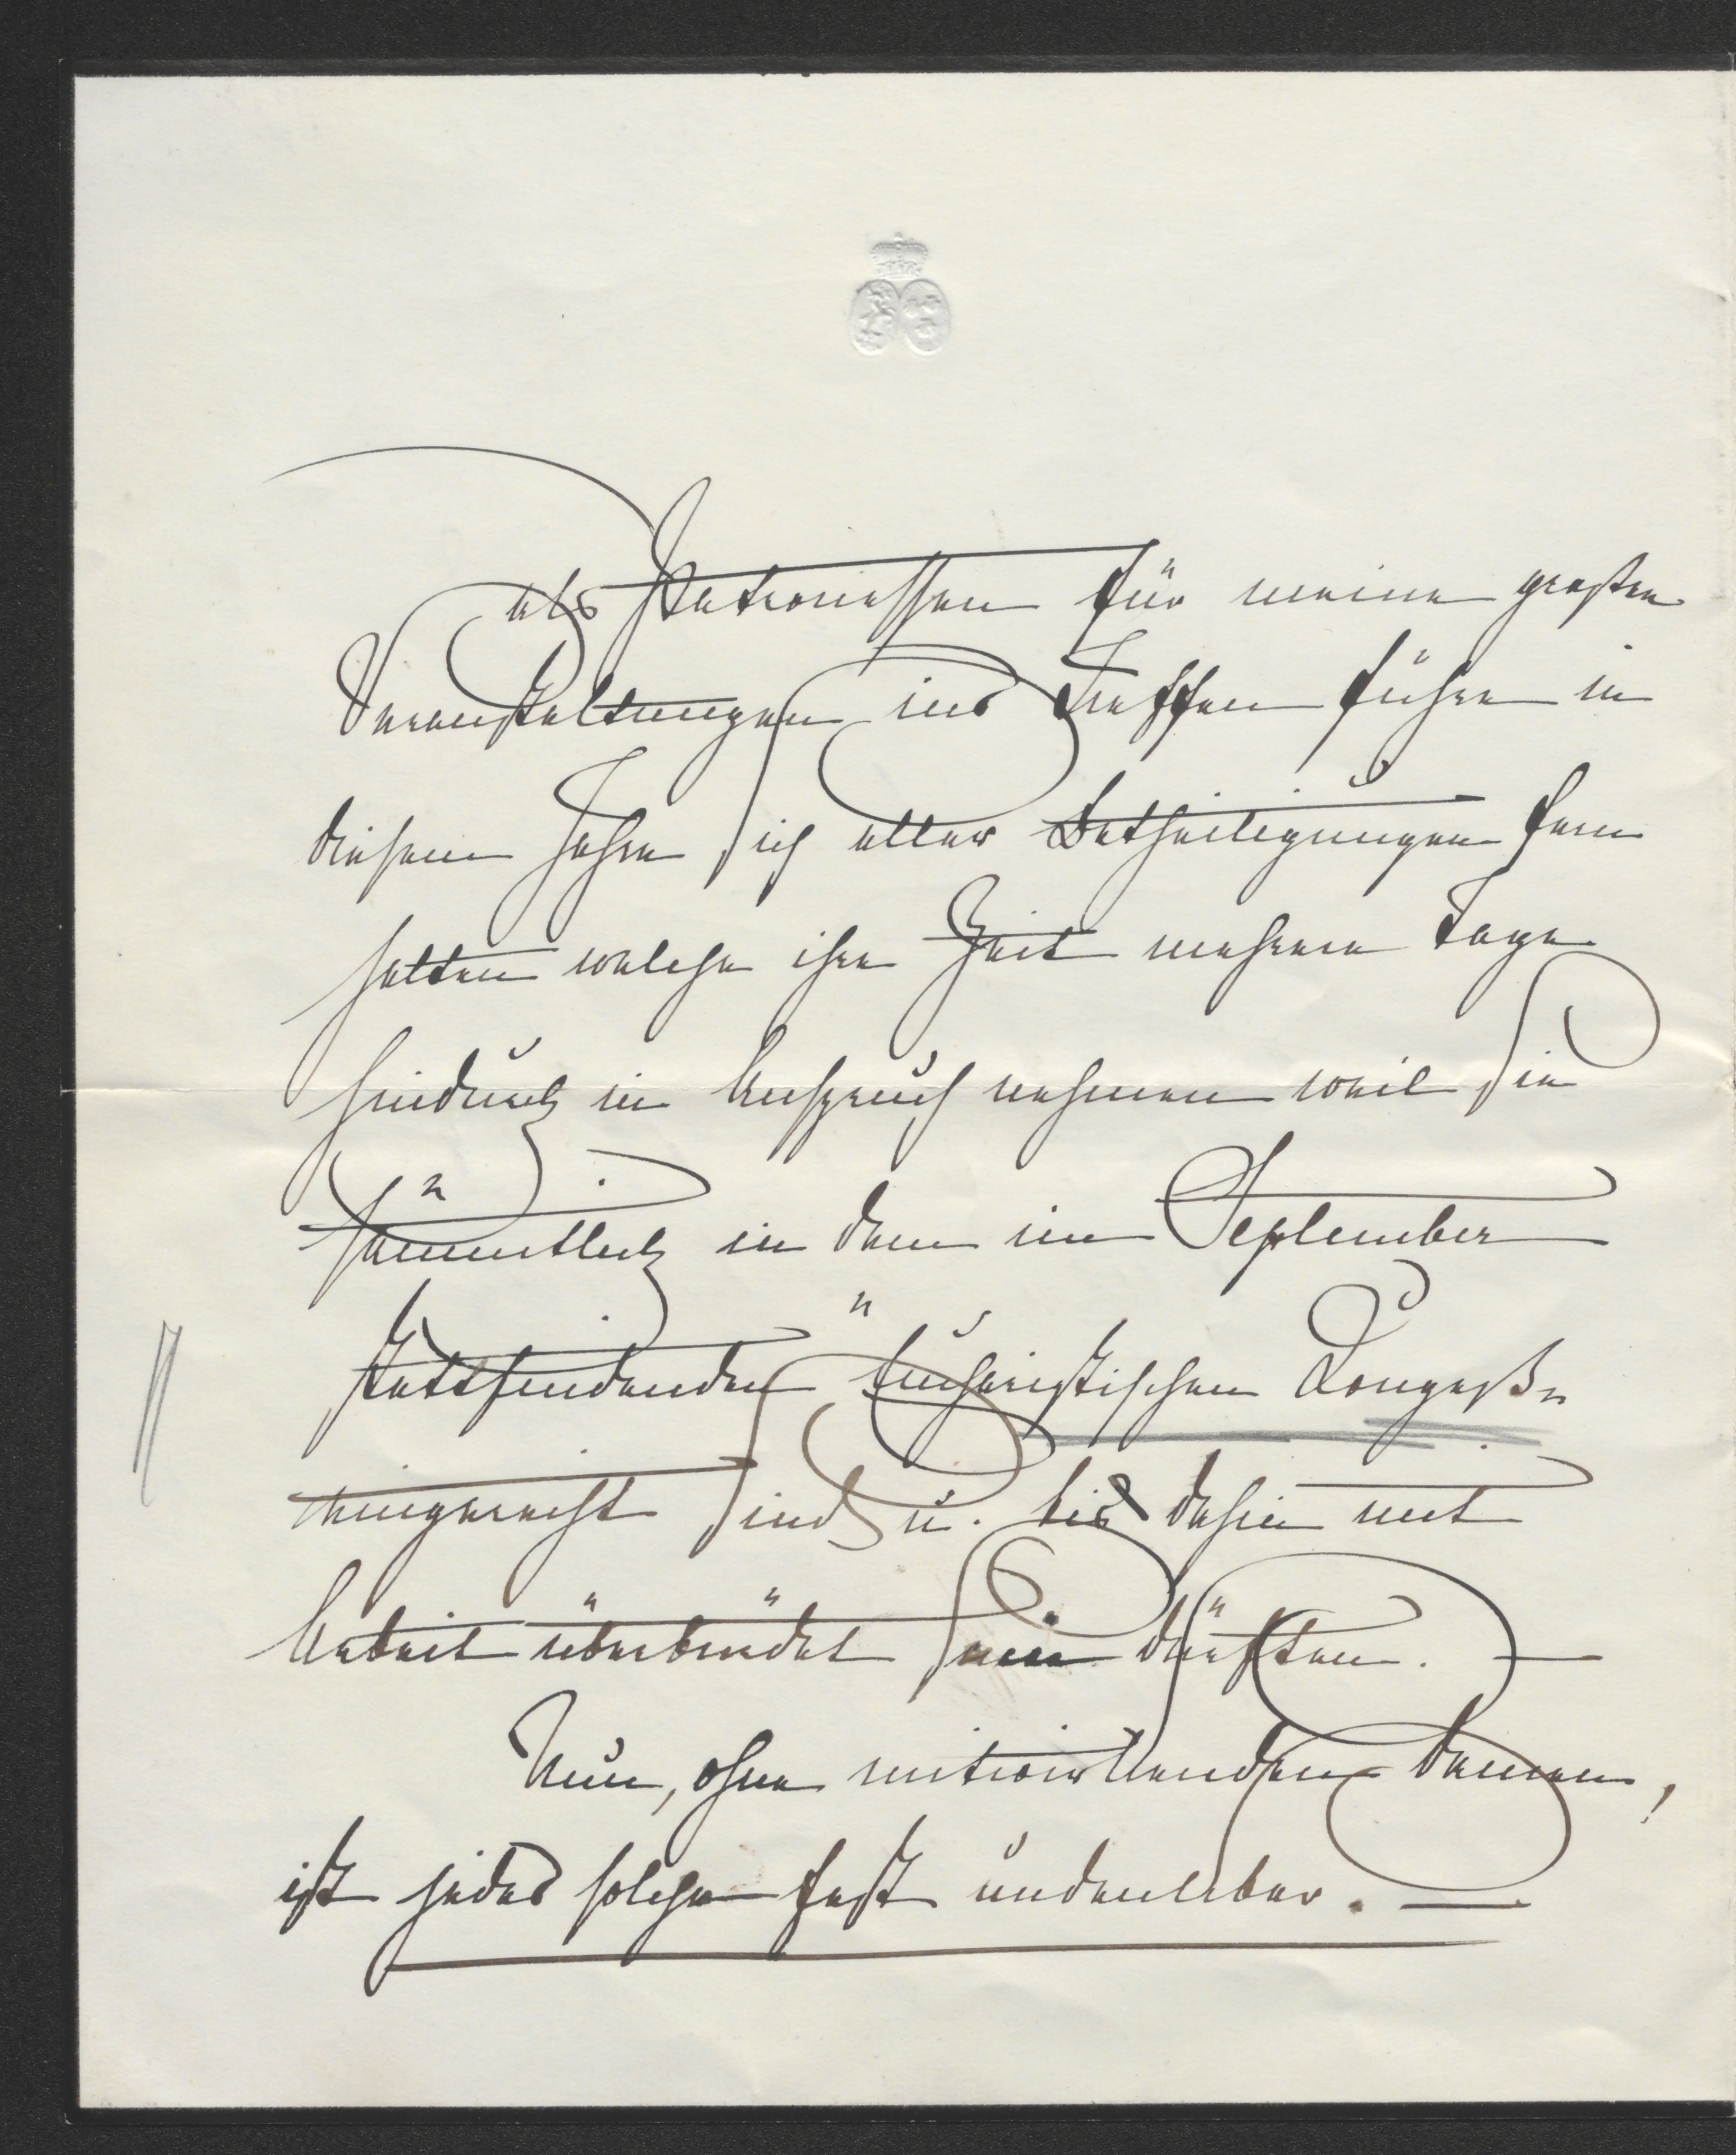 als Patronessen für meine großen
Veranstaltungen ins Treffen führe in
diesem Jahre sich aller Betheiligungen fern
halten welche ihre Zeit mehrere Tage
hindurch in Anspruch nehmen weil sie
sämmtlich in dem im September
stattfindenden "Eucharistischen Congreß"
eingereiht sind u. bis dahin mit
Arbeit überbürdet sein dürften. —
Nun, ohne mitwirkenden Damen,
ist jedes solche Fest undenkbar. —